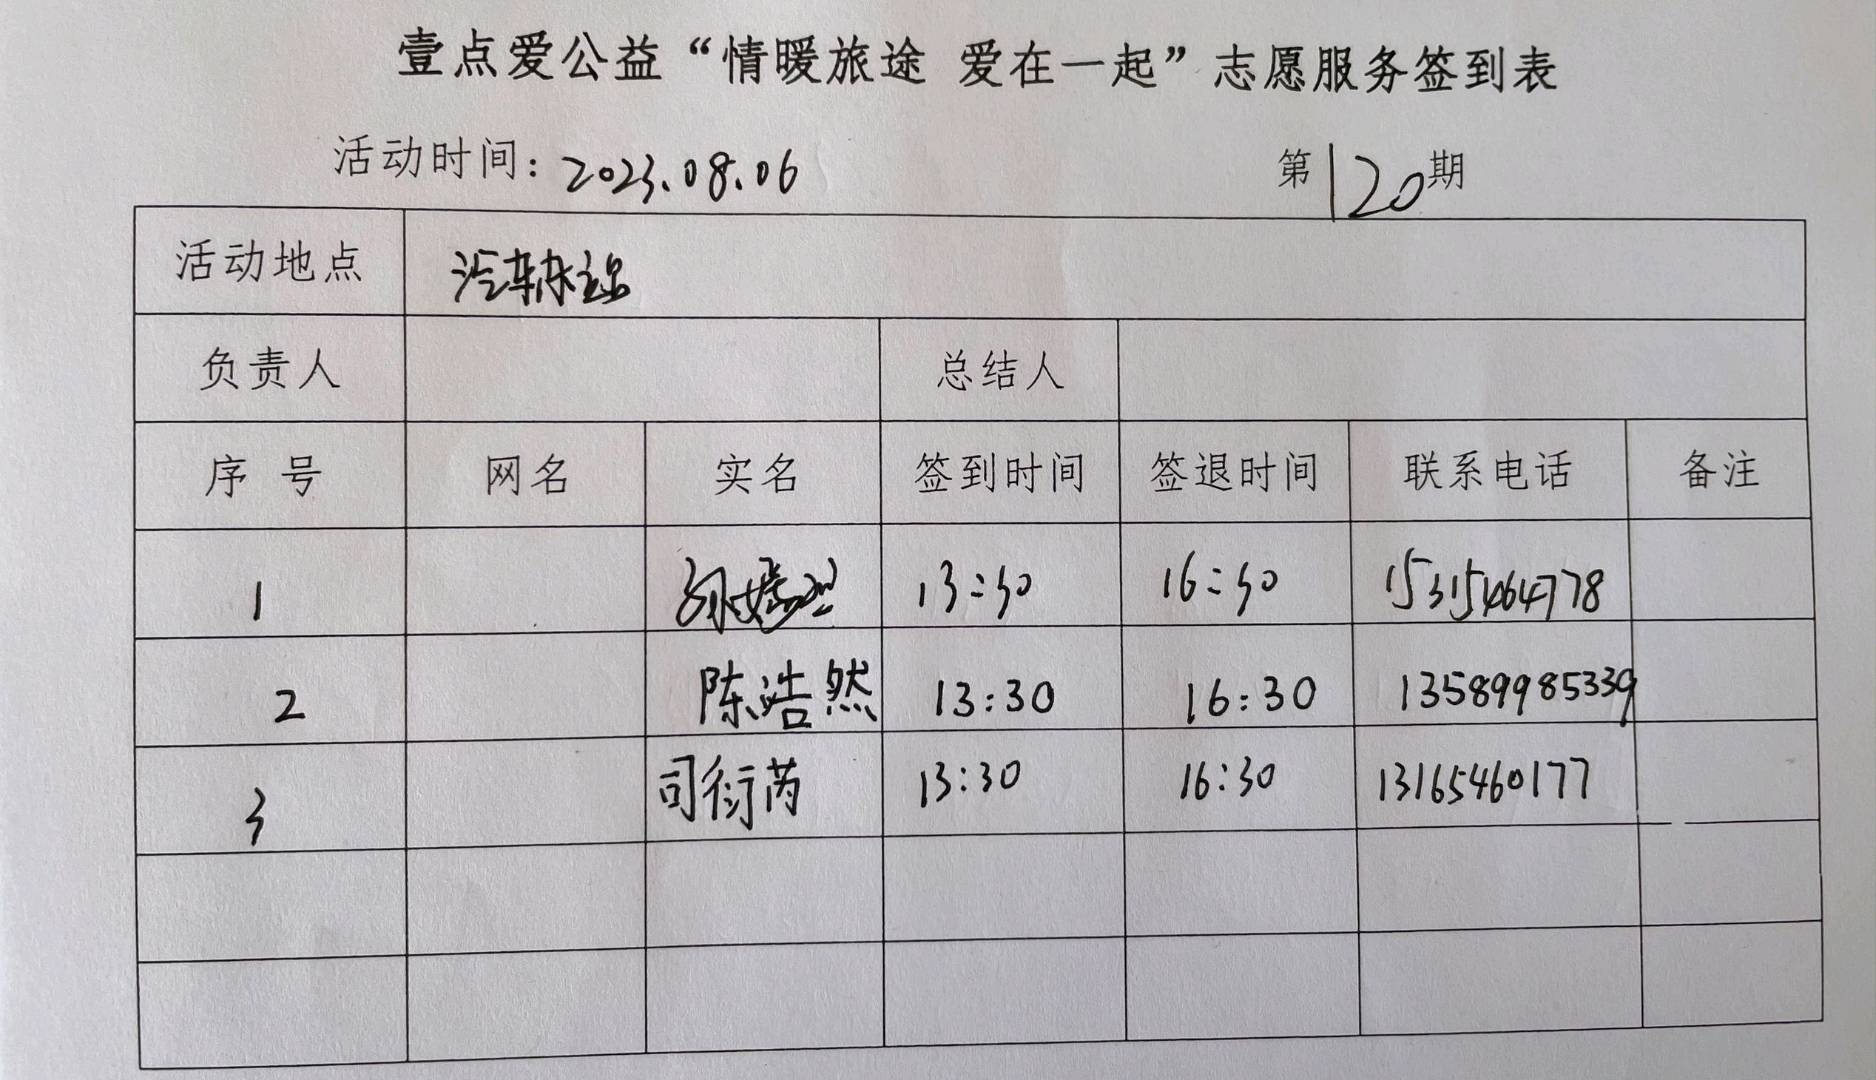 壹点爱公益“情暖旅途 爱在一起”志愿服务签到表
活动时间：2023.08.06 第120期
活动地点 汽车东站
负责人 总结人
序号 网名 实名 签到时间 签退时间 联系电话 备注
1 孙 13:30 16:30 15315464778
2 陈浩然 13:30 16:30 13589985339
3 司衍芮 13:30 16:30 13165460177